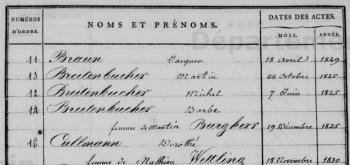 NUMÉROS D'ORDRE.
NOMS ET PRÉNOMS.
DATES DES ACTES.
MOIS. ANNÉE.
11 Braun Jacques 18 Avril 1829
13 Breitenbucher Martin 24 Octobre 1825
12 Breitenbucher Michel 7 Juin 1825
14 Breitenbucher Barbe
femme de Martin Burgherr 19 Décembre 1825
16 Cullmann Dorothé
femme de Mathieu Wettling 18 Novembre 1830